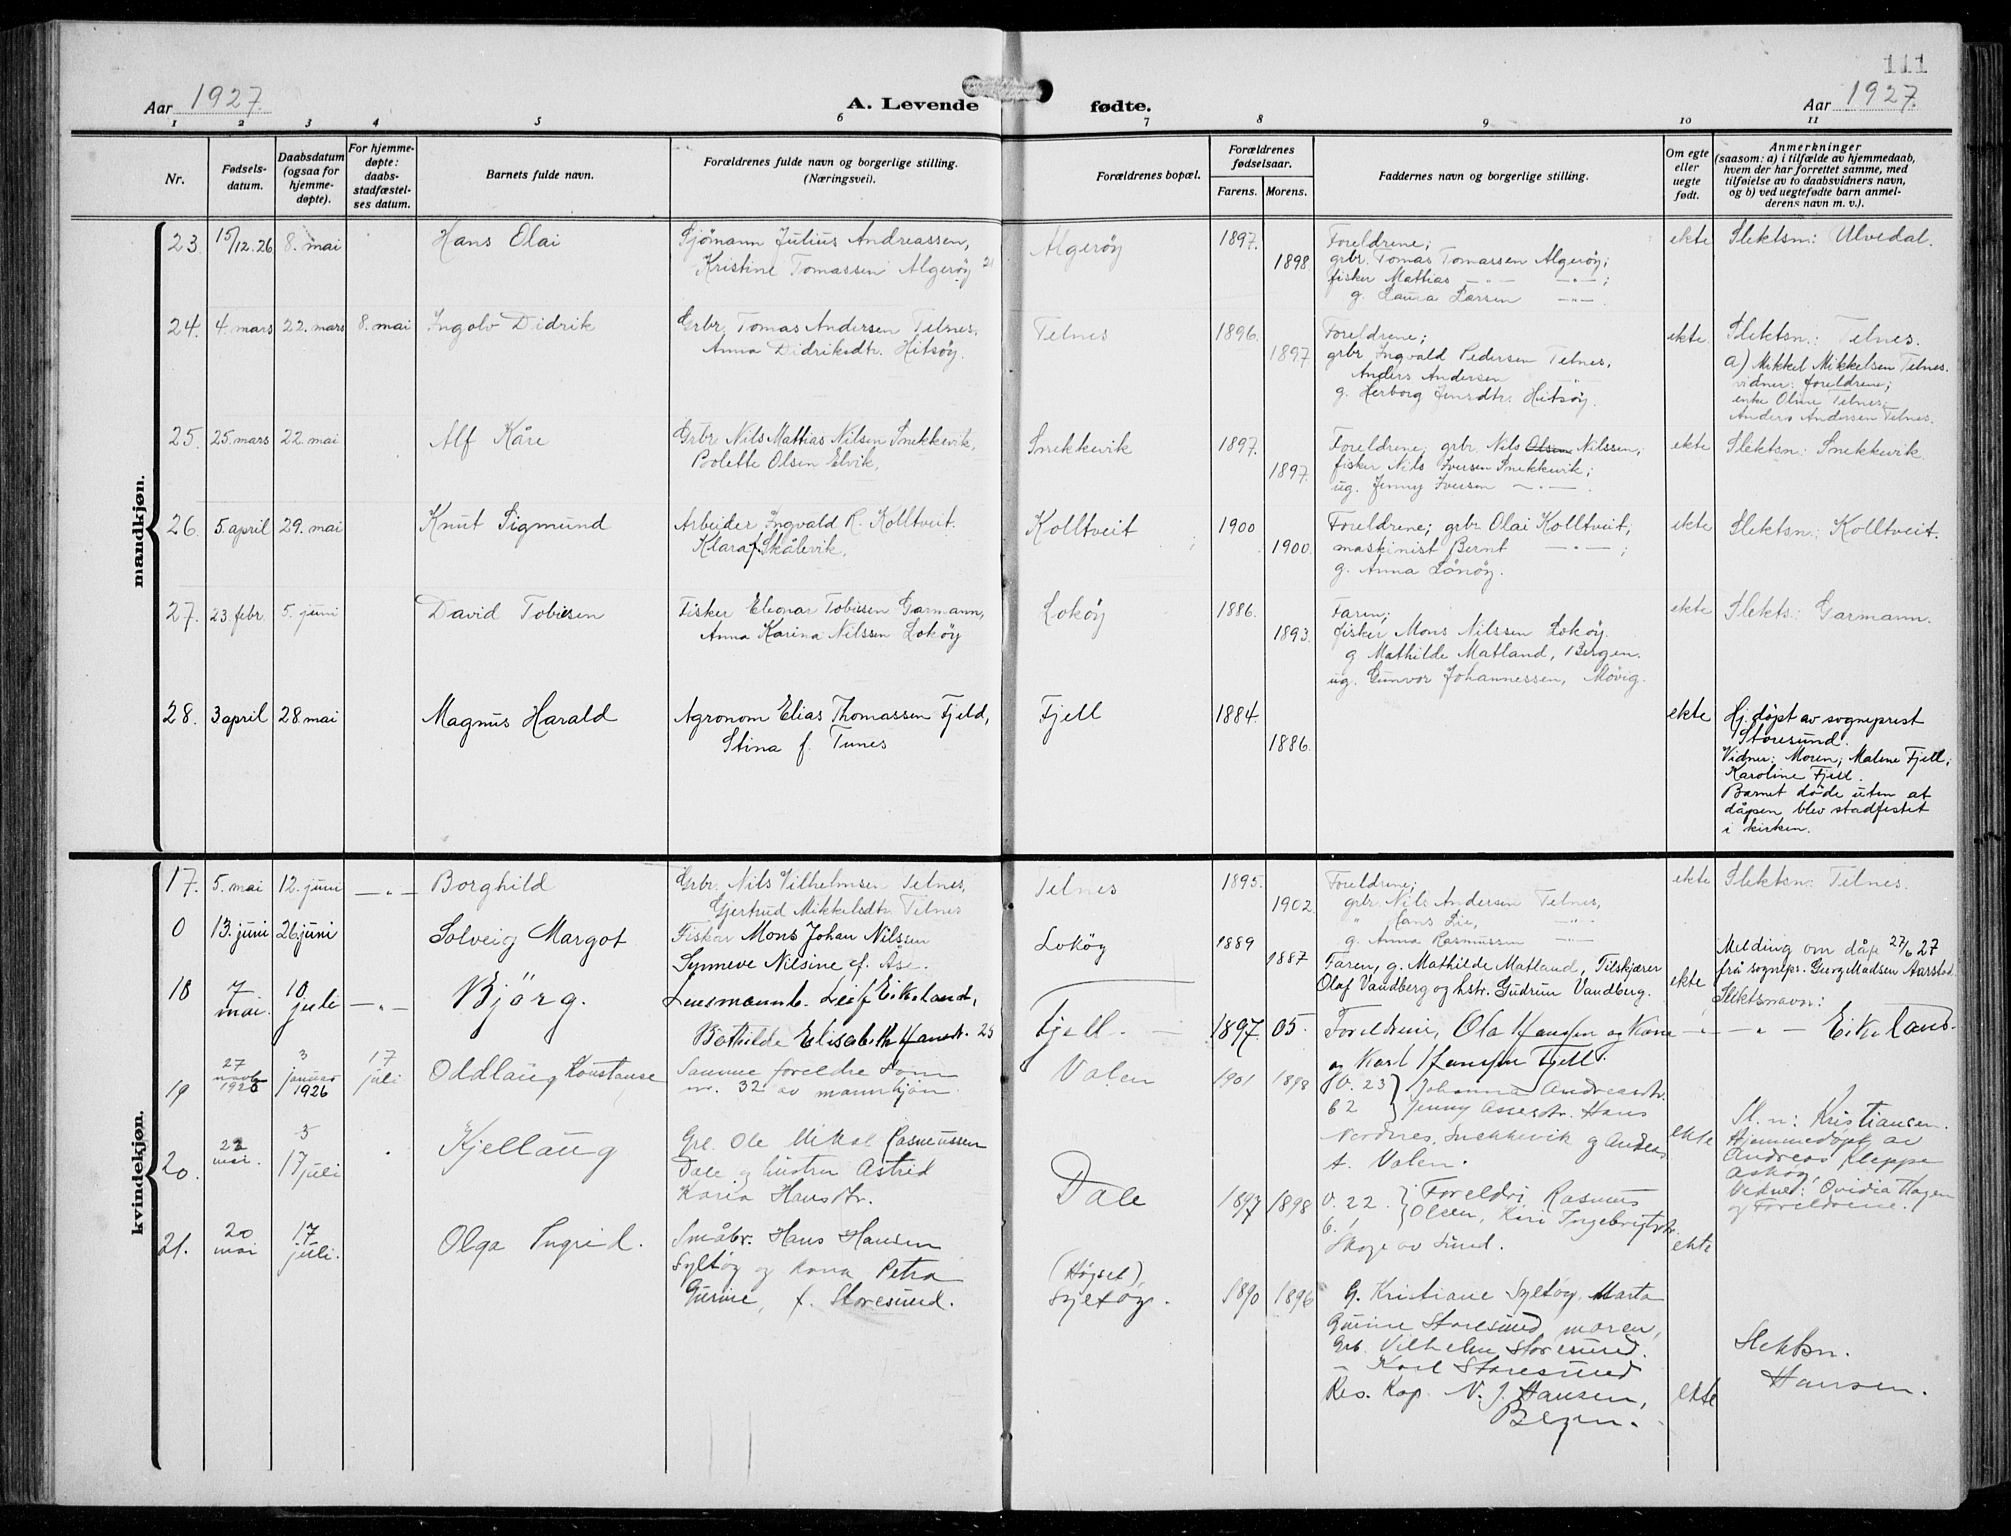 111
Aar 1927.
A. Levende fødte.
Aar 1927.
1 2 3 4 5 6 7 8 9 10 11
Nr.
Fødsels-
datum.
Daabsdatum
(ogsaa for
hjemme-
døpte).
For hjemme-
døpte:
daabs-
stadfæstel-
ses datum.
Barnets fulde navn.
Forældrenes fulde navn og borgerlige stilling.
(Næringsvei).
Forældrenes bopæl.
Forældrenes
fødselsaar.
Farens. Morens.
Faddernes navn og borgerlige stilling.
Om egte
eller
uegte
født.
Anmerkninger
(saasom: a) i tilfælde av hjemmedaab,
hvem der har forrettet samme, med
tilføielse av to daabsvidners navn,
og b) ved uegtefødte barn anmel-
derens navn m. v.).
mandkjøn.
23. 15/12.26 8. mai
Hans Olai
Sjømann Julius Andreassen,
Kristine Tomassen Algerøy
Algerøy
1897.
1898.
Foreldrene;
grbr. Tomas Tomassen Algerøy;
fisker Mattias — " — — " — ;
g. Laura Larsen — " — .
ekte
Slektsn: Ulvedal.
24. 4. mars 22. mars 8. mai
Ingolv Didrik
Grbr. Tomas Andersen Telnes,
Anna Didriksdtr. Hitsøy.
Telnes
1896.
1897
Foreldrene;
grbr Ingvald Pedersen Telnes,
Anders Andersen "
g. Herborg Jensdtr. Hitsøy.
ekte.
Slektsn.: Telnes.
a) Mikkel Mikkelsen Telnes.
vidner: foreldrene;
enke Oline Telnes;
Anders Andersen Telnes.
25. 25. mars 22. mai
Alf Kåre
Grbr Nils Mattias Nilsen Snekkevik,
Bolette Olsen Elvik,
Snekkevik
1897.
1897.
Foreldrene; grbr. Nils Olsen Nilssen;
fisker Nils Iversen Snekkevik;
ug. Jenny Iversen — " — .
ekte
Slektsn: Snekkevik.
26. 5. april 29. mai
Knut Sigmund
Arbeider Ingvald R. Kolltveit.
Klara f. Skålevik.
Kolltveit
1900
1900.
Foreldrene; grbr. Olai Kolltveit;
maskinist Bernt — " — ;
g. Anna Lånøy.
ekte
Slektsn.: Kolltveit.
27. 23. febr. 5. juni
David Tobisen
Fisker Eleonar Tobisen Garmann,
Anna Karina Nilssen Lokøy
Lokøy
1886.
1893.
Faren;
fisker Mons Nilssen Lokøy.
g Mathilde Matland, Bergen.
ug. Gunvor Johannessen, Møvig.
ekte
Slekts: Garmann.
28. 3 april 28 mai
Magnus Harald
Agronom Elias Thomassen Fjeld,
Stina f. Tunes
Fjell
1884.
1886.
ekte
Hj. døpt av sogneprest
Storesund.
Vidner: Moren; Malene Fjell;
Karoline Fjell.
Barnet døde uten at
dåpen blev stadfestet
i kirken.
kvindekjøn.
17. 5. mai 12. juni — " —
Borghild
Grbr. Nils Vilhelmsen Telnes,
Gjertrud Mikkelsdtr. Telnes
Telnes
1895.
1902
Foreldrene;
grbr. Nils Andersen Telnes,
" Hans Lie, — " —
g. Anna Rasmussen — " —
ekte
Slektsn: Telnes.
0 13. juni 26 juni
Solveig Margot
Fisker Mons Johan Nilssen
Synneve Nilsine f. Åse.
Lokøy
1889
1887
Faren, g. Mathilde Matland, Tilskjærer
Olaf Vandberg og hstr. Gudrun Vandberg.
ekte
Melding om dåp 27/6 27
frå sognepr. Georg Madsen Aarstad.
Slektsnavn:
18 7 mai. 10 juli — " —
Bjørg.
Lensmannb. Leif Eikeland,
Bothilde Elisabeth Hansdr. 25
Fjell.
1897 05.
Foreldrene, Ola Hansen og Kona
og Karl Hansen Fjell.
— " — Eikeland.
19 27 novbr 1925 3 januar 1926 17 juli
Oddlaug Konstanse
Samme foreldre som
nr. 32 av mannkjøn.
Valen
1901 1898
V. 23 Johanna Andreasdtr.
62 Jenny Assesdtr. Hans
Nordnes, Snekkevik og Andreas
A. Valen.
ekte
Sl. n: Kristiansen.
Hjemmedøpt av
Andreas Kleppe
Askøy.
Vidner: Ovidia Hagen
og Foreldrene.
20. 22 mai. 3 17 juli
Kjellaug
Grb. Ole Mikal Rasmussen
Dale og hustru Astrid
Karia Hansdtr.
Dale
1897 1898
V. 22. Foreldri Rasmus
6. Olsen, Kari Ingebrigtsdtr.
Skoge av Sund.
ekte
21. 20 mai 17 juli.
Olga Ingrid.
Småbr. Hans Hansen
Syltøy og kona Petra
Gurine, f. Storesund.
(Høyset),
Syltøy.
1890 1896
G. Kristiane Syltøy, Marta
Gurine Storesund, moren,
Grb. Vilhelm Storesund.
" Karl Storesund
Res. Kap. N. J. Hansen,
Bergen.
ekte
Slektsn.
Hansen.